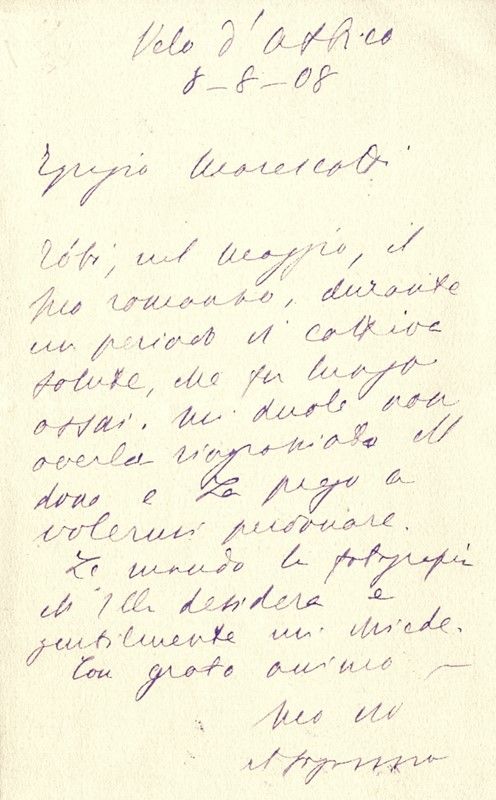 Velo d'Astico
8-8-08
Egregio Marescotti
Ebbi, nel Maggio, il
suo romanzo, durante
un periodo di cattiva
salute, che fu lungo
assai. Mi duole non
averla ringraziato del
dono e La prego a
volermi perdonare.
Le mando la fotografia
ch'Ella desidera e
gentilmente mi chiede.
Con grato animo
Suo